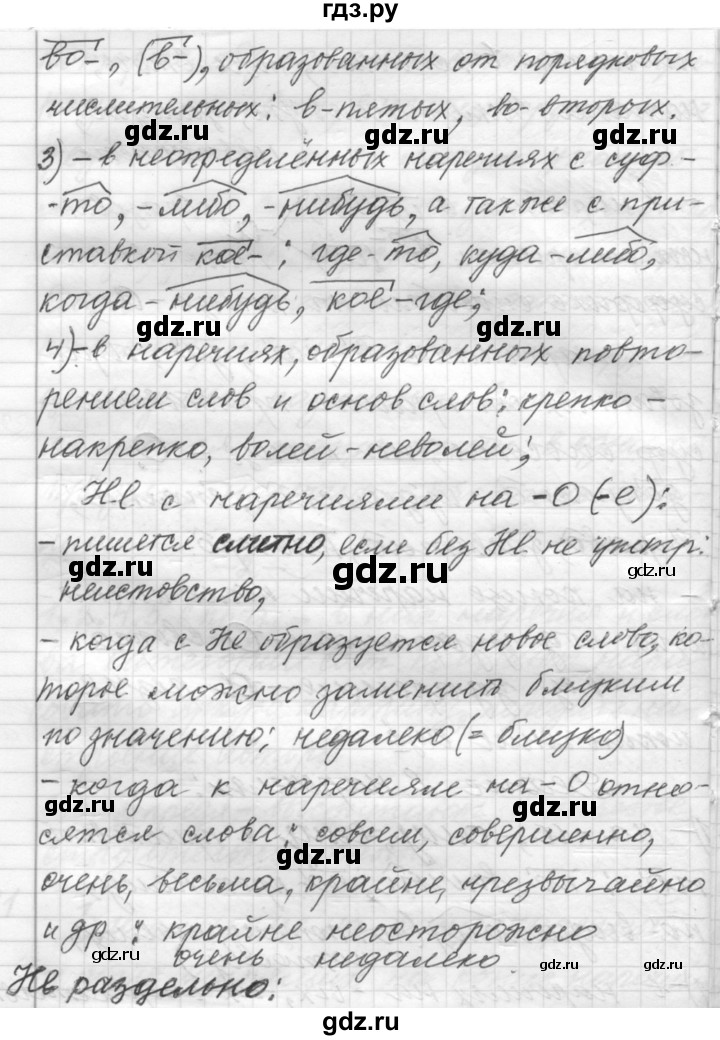 гдз.ру
во-, (в-), образованных от порядковых
числительных: в-пятых, во-вторых.
gdz.ru gdz.ru
3) – в неопределённых наречиях с суф-
-то, -либо, -нибудь, а также с при-
ставкой кое-: где-то, куда-либо,
gdz.ru gdz.ru
когда-нибудь, кое-где;
gdz.ru gdz.ru
4) – в наречиях, образованных повто-
рением слов и основ слов: крепко-
gdz.ru gdz.ru
накрепко, волей-неволей;
Не с наречиями на -О (-е):
- пишется слитно, если без Не не употр:
gdz.ru gdz.ru gdz.ru
неистовство,
- когда с Не образуется новое слово, ко-
gdz.ru gdz.ru
торое можно заменить близким
по значению: недалеко (= близко)
gdz.ru gdz.ru
- когда к наречиям на -О отно-
gdz.ru gdz.ru
сятся слова: совсем, совершенно,
gdz.ru
очень, весьма, крайне, чрезвычайно
и др: крайне неосторожно
gdz.ru
очень недалеко.
gdz.ru gdz.ru
Не раздельно:
gdz.ru